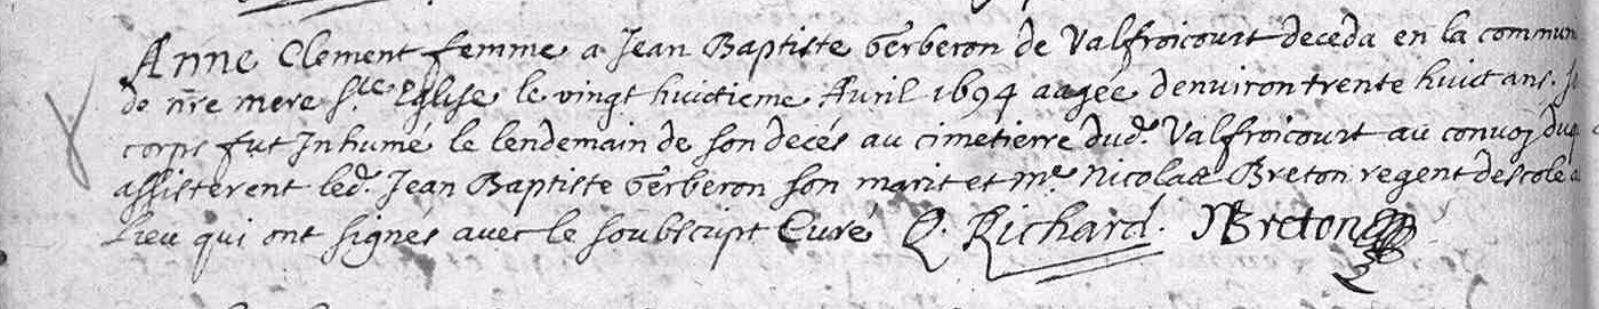 Anne Clement femme a Jean Baptiste Gerberon de Valfroicourt deceda en la commun
de nr̃e mere Ste Eglise le vingt huictieme Avril 1694 aagée denviron trente huict ans. 
corps fut Inhumé le lendemain de son decés au cimetierre dud. Valfroicourt au convoj duq
assisterent led. Jean Baptiste Gerberon son marit et me. Nicolas Breton regent descole
Lieu qui ont signés avec le soubscript Curé Q. Richard. NBreton